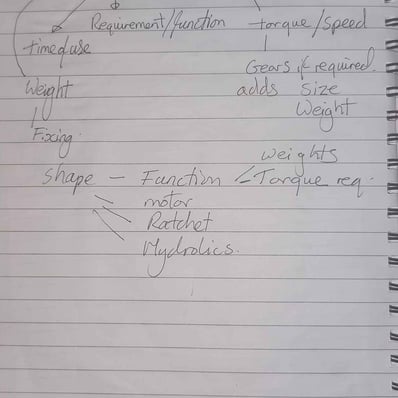 Requirement/function
torque/speed
time of use
Gears if required.
adds size
Weight
Weight
Fixing
shape – Function < Weights
Torque req.
motor
Ratchet
Hydrolics.